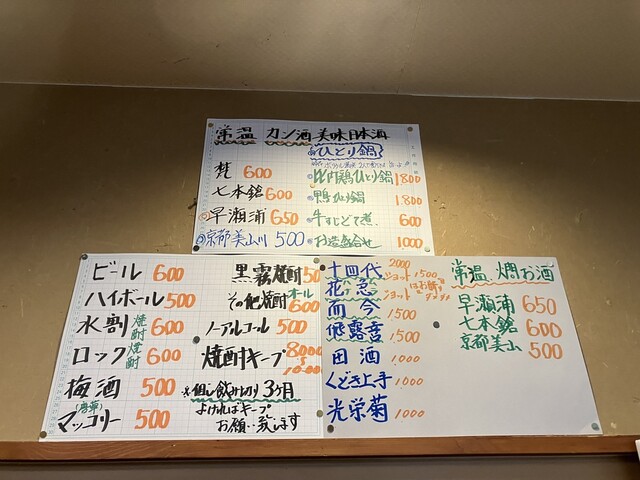 常温 カン酒 美味日本酒
ひとり鍋
梵 600
七本鎗 600
早瀬浦 650
京都美山川 500
比内鶏ひとり鍋 1.800
鴨 ひとり鍋 1.800
牛すじどて煮. 600
お造盛合せ 1000
ビール 600
ハイボール 500
水割 焼酎 600
ロック 焼酎 600
梅酒 500
マッコリー 500
黒霧焼酎
その他焼酎 オール 600
ノンアルコール 500
焼酎キープ 8000
※但し飲み切り 3ヶ月
よければキープ
お願い致します
十四代 2000
ショット 1500
花急
ショット
而今 1500
飛露喜 1500
田酒 1000
くどき上手 1000
光栄菊 1000
常温 燗お酒
早瀬浦 650
七本鎗 600
京都美山 500